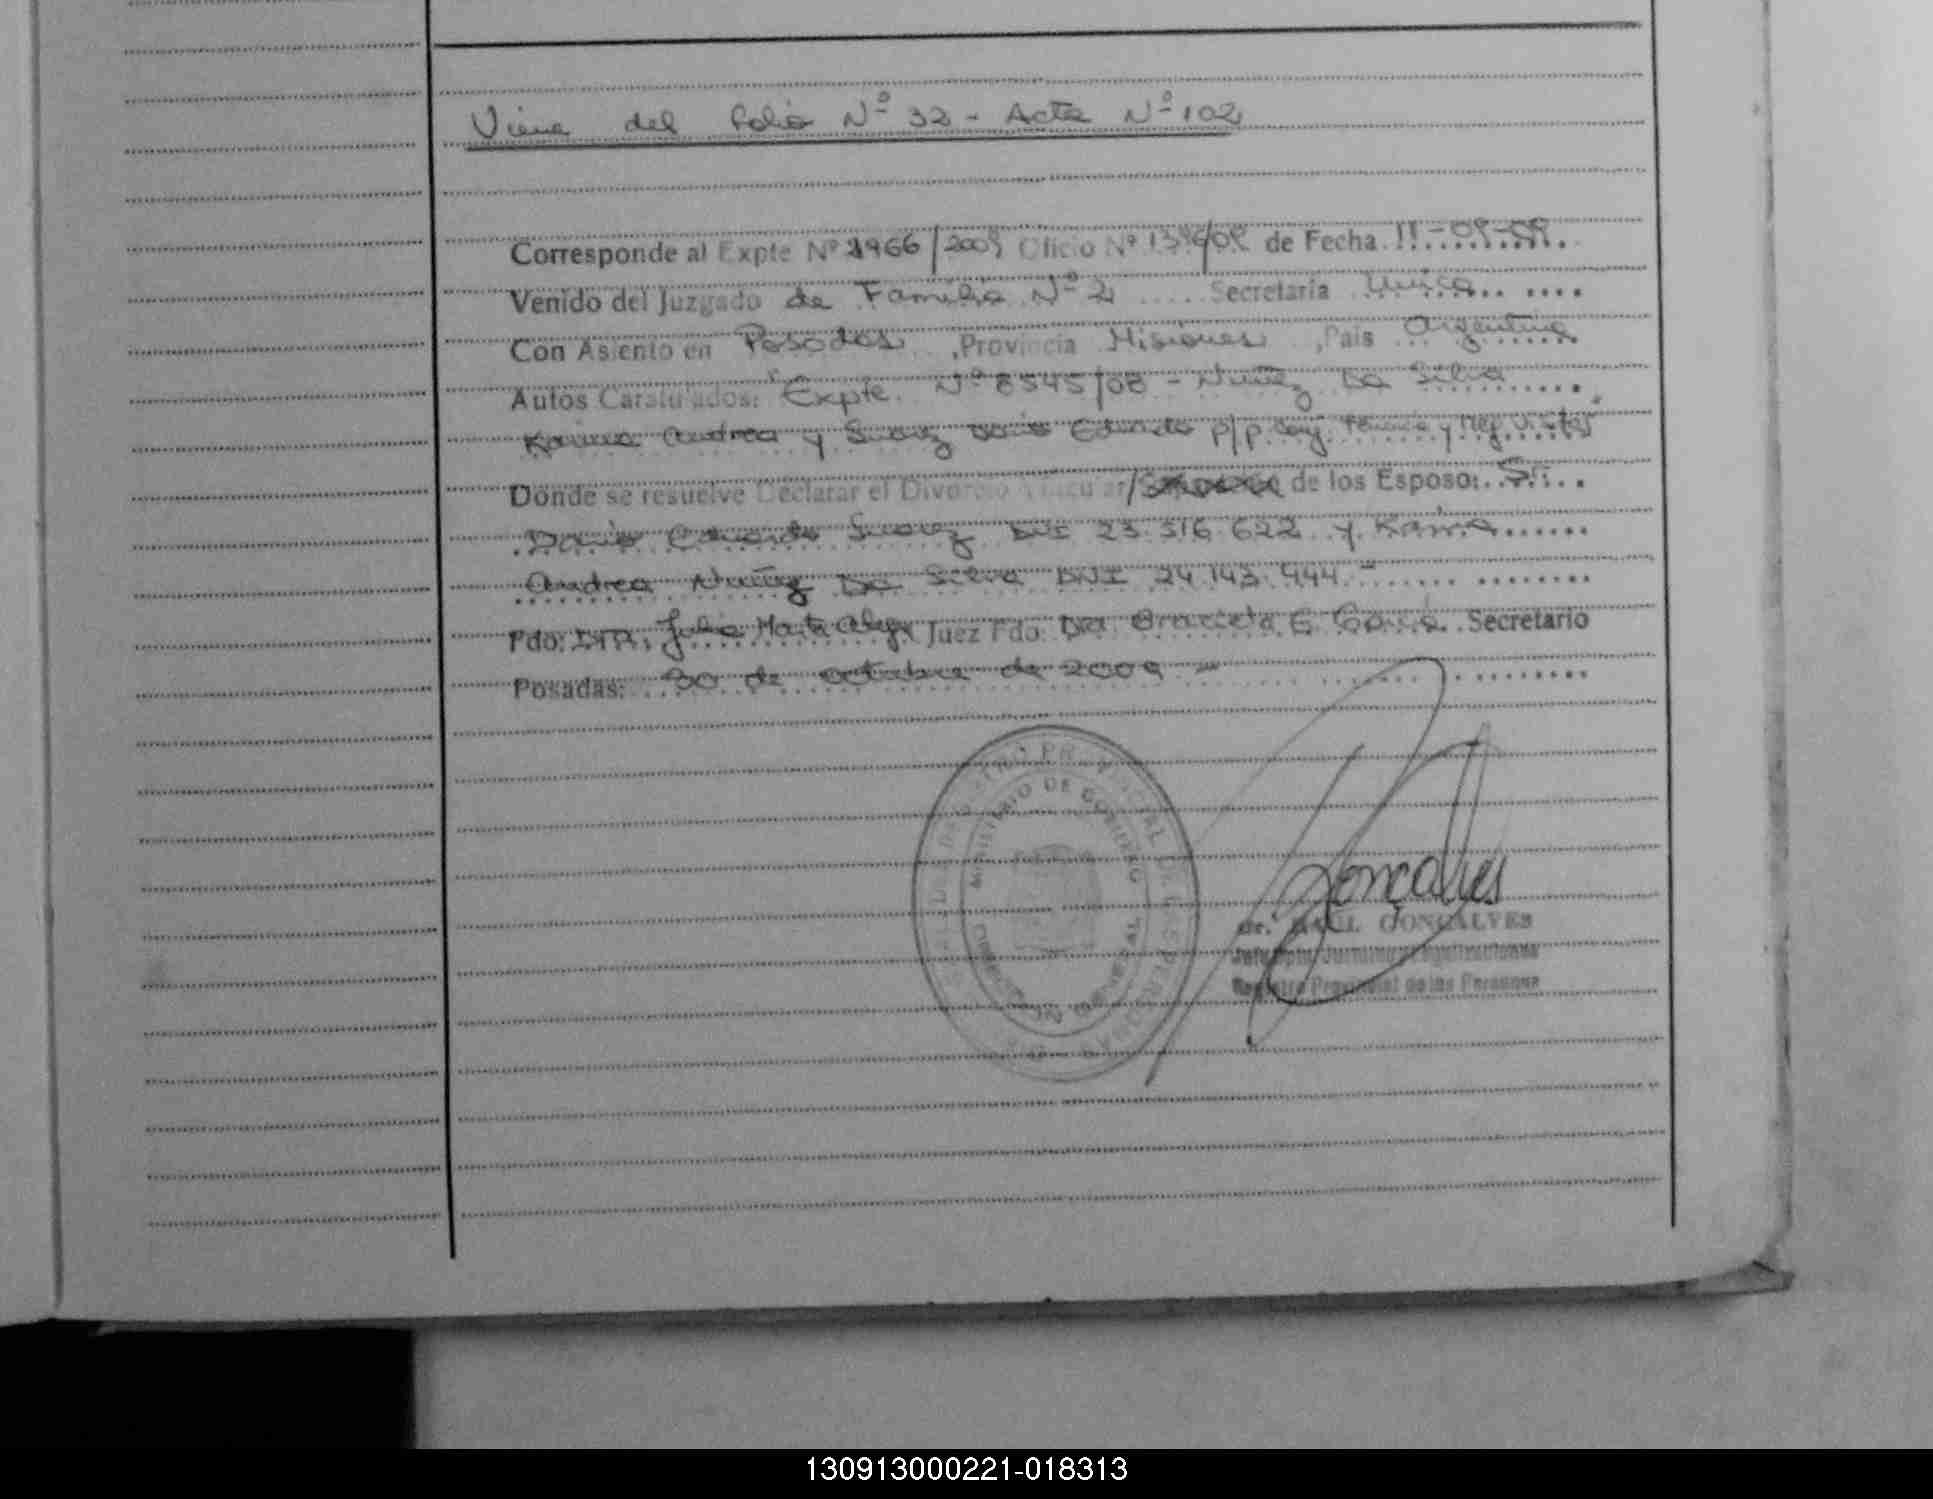 Viene del folio Nº 32 - Acta Nº 102
Corresponde al Expte Nº 2966/2009 Oficio Nº de Fecha 11-09-09
Venido del Juzgado de Familia Nº 2 Secretaria Unica
Con Asiento en Posadas, Provincia Misiones, País Argentina
Autos Caratulados: "Expte. Nº 8545/08 - Nuñez Da Silva
Karina Andrea y Suarez Dario Eduardo p/p Conj. Tenencia y Reg. Visitas"
Donde se resuelve Declarar el Divorcio Vincular/ de los Esposo: Sr.
Dario Eduardo Suarez DNI 23.316.622 y Karina
Andrea Nuñez Da Silva DNI 24.143.444.-
Fdo: Dra. Julia Marta Juez Fdo: Dra Graciela E. Secretario
Posadas: 30 de octubre de 2009 -
MINISTERIO DE GOBIERNO
Goncalves
Dr. RAUL GONCALVES
Registro Provincial de las Personas
130913000221-018313